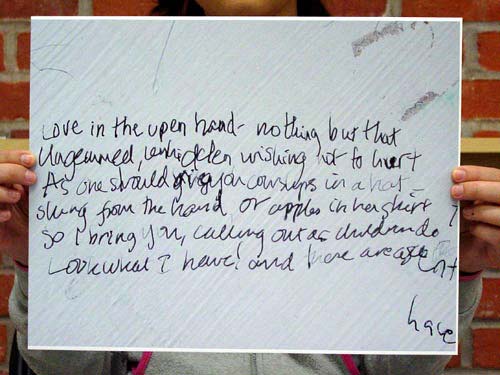 Love in the upen hand - nothing but that
Ungemmed, wishing not to hurt
As one should give you cowslips in a hat
slung from the hand, or apples in her skirt
So I bring you, calling out as children do
Look what I have! and these are all
have